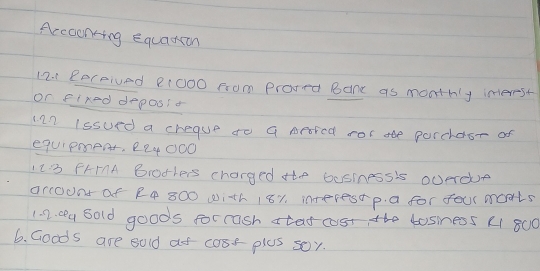 Accounting Equation
1.2.1 Received R1 000 from Prosta Bank as monthly interest
or fixed deposit
1.2.2 Issued a cheque to G for the purchase of
equipment, R24 000
1.2.3 Brothers charged the business's overdue
account of R4 800 with 18% interest p.a for four months
1.2.4 Sold goods for cash that cost the business R1 800
6. Goods are sold at cost plus 50%.